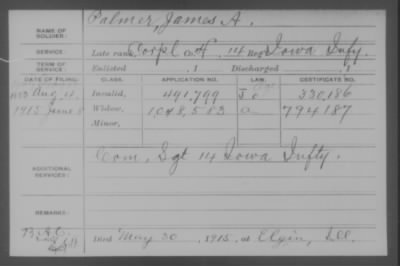 NAME OF SOLDIER: Palmer, James A.
SERVICE: Late rank, Corpl Co. H, 14 Reg. Iowa Infy.
TERM OF SERVICE: Enlisted , 1 Discharged , 1
DATE OF FILING. CLASS. APPLICATION NO. LAW. CERTIFICATE NO.
Aug. 4, Invalid, 491,799 330,186
1915 June 8 Widow, 1,048,583 a 794187
Minor,
ADDITIONAL SERVICES: Com, Sgt 14 Iowa Infty.
REMARKS:
Died May 30, 1915, at Elgin, Ill.